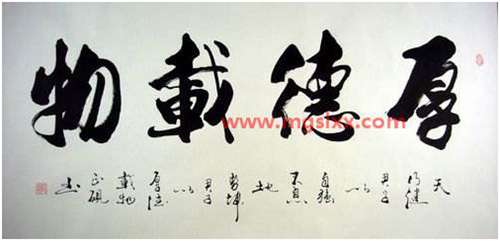 厚德載物
www.mgsixx.com
天行健君子以自強不息地勢坤君子以厚德載物